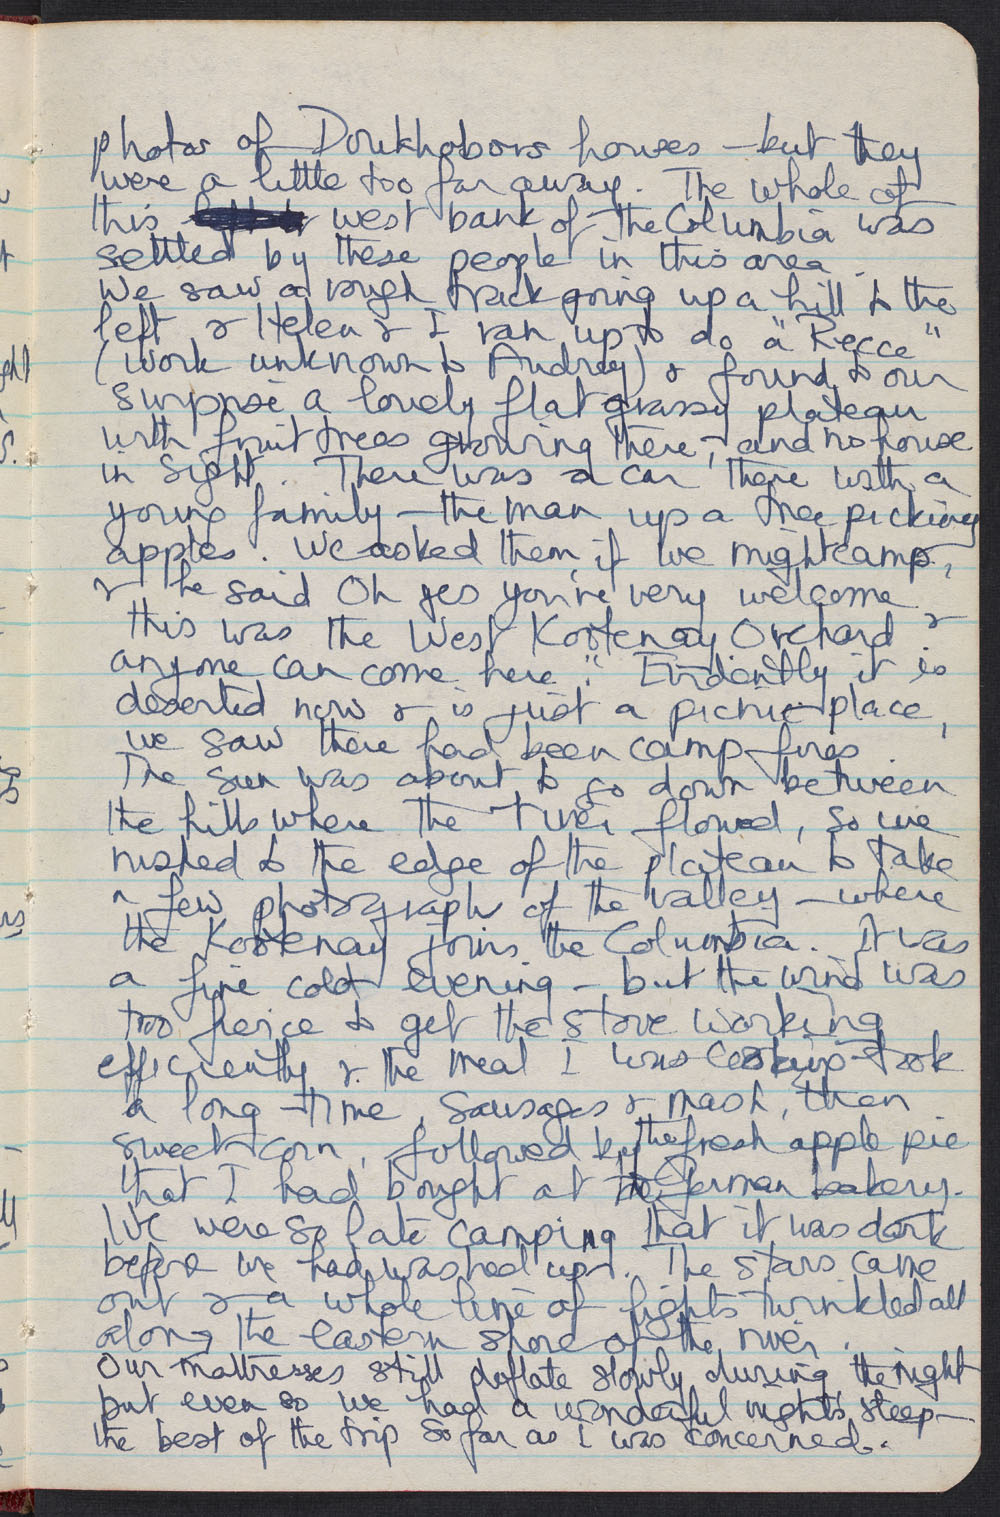 photos of Doukhobors houses - but they
were a little too far away. The whole of
this west bank of the Columbia was
settled by these people in this area.
We saw a rough track going up a hill to the
left & Helen & I ran up to do a "Recce"
(work unknown to Audrey) & found to our
surprise a lovely flat grassy plateau
with fruit trees growing there, - and no house
in sight. There was a car there with a
young family - the man up a tree picking
apples. We asked them, if we might camp,
& he said Oh yes you're very welcome &
this was the West Kootenay Orchard
anyone can come here." Evidently it is
deserted now & is just a picnic place,
we saw there had been camp fires
The sun was about to go down between
the hills where the river flowed, so we
rushed to the edge of the plateau to take
a few photographs of the valley - where
the Kootenay joins the Columbia. It was
a fine cold evening - but the wind was
too fierce to get the stove working
efficiently & the meal I was cooking took
a long time, sausages & mash, then
sweet corn, followed by the fresh apple pie
that I had bought at the German bakery.
We were so late camping that it was dark
before we had washed up. The stars came
out & a whole line of lights twinkled all
along the eastern shore of the river.
Our mattresses still deflate slowly during the night
but even so we had a wonderful nights sleep -
the best of the trip so far as I was concerned.